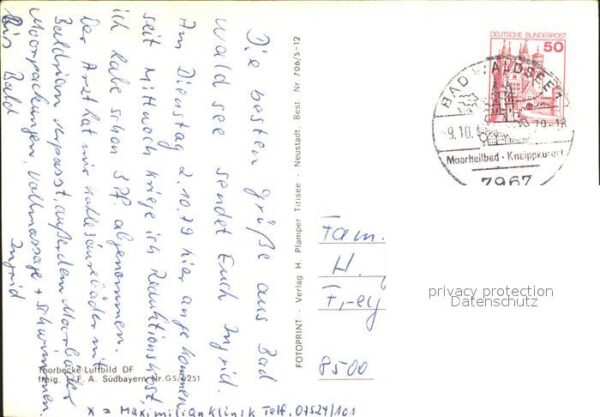 Die besten Grüße aus Bad
Waldsee sendet Euch Ingrid.
Am Dienstag 2.10.79 hier angekommen
seit Mittwoch kriege ich Reduktionskost,
ich habe schon 3 Pf. abgenommen.
Der Arzt hat mir Kohlesäurebäder mit
Baldrian verpasst, außerdem Moorbäder
Moorpackungen, Vollmassage + Schwimmen.
Bis Bald
Ingrid
FOTOPRINT - Verlag H. Plamper Titisee - Neustadt. Best. Nr 706/5-12
DEUTSCHE BUNDESPOST
50
BAD WALDSEE 1
-9.10.79-18
Moorheilbad - Kneippkurort
7967
Fam.
H.
Frey
8500
privacy protection
Datenschutz
Thorbecke-Luftbild DF
freig. A. Südbayern Nr. G5/6251
x Maximilianklinik Telf. 07524/101